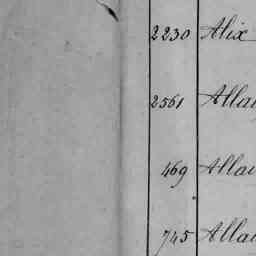 2230 Alix
2561 Allai
469 Allai
745 Allai